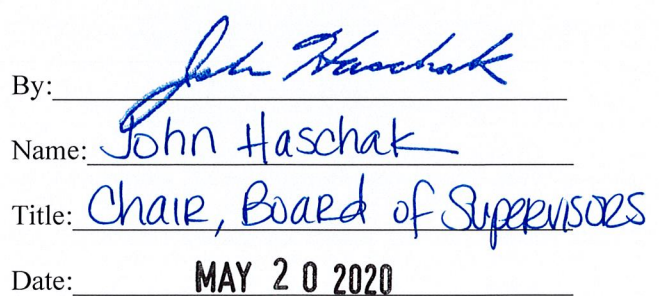 By: John Haschak
Name: John Haschak
Title: Chair, Board of Supervisors
Date: MAY 20 2020